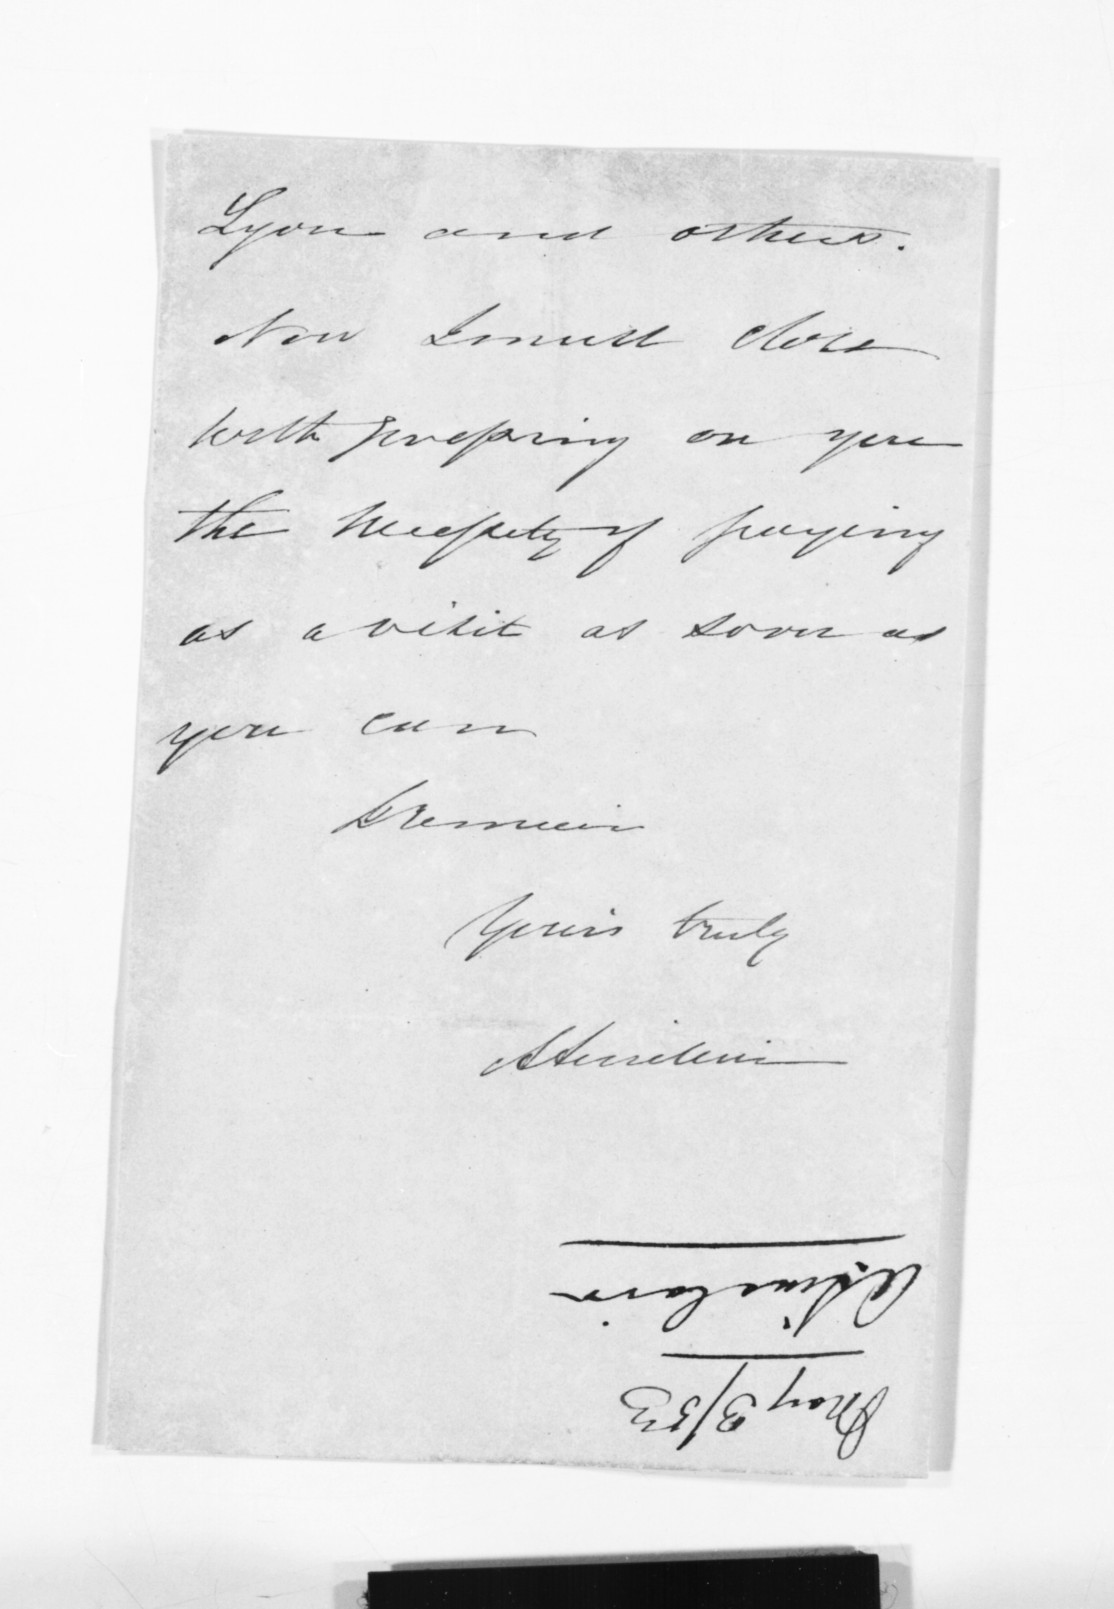 Lyon and others.
Now I must close
with impressing on you
the necessity of paying
us a visit as soon as
you can
I remain
Yours truly
A Sinclair
A Sinclair
May 3/53